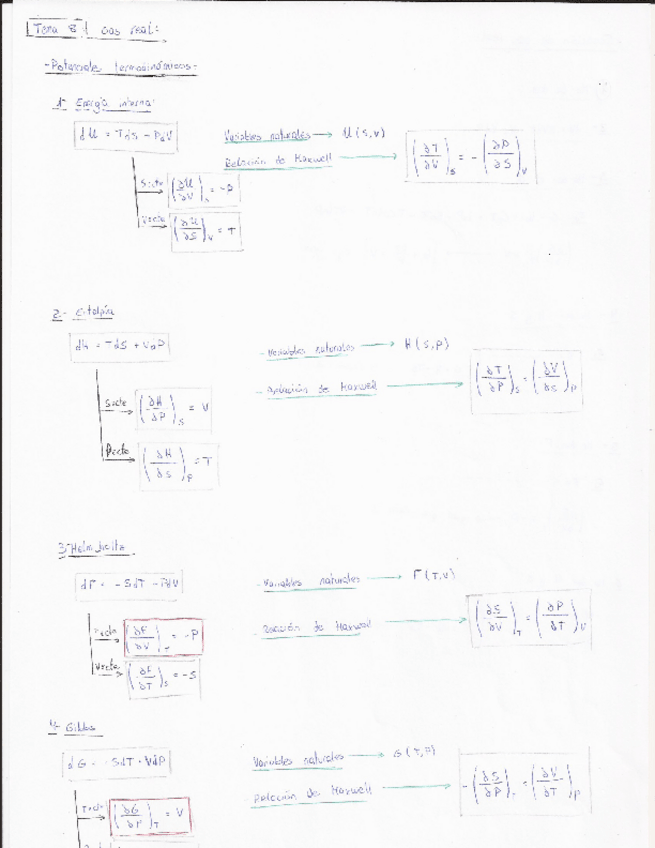 Tema 8 Gas real:
- Potenciales termodinámicos:
1- Energía interna:
dU = TdS - PdV
Variables naturales → U(S,V)
Relación de Maxwell → (∂T/∂V)_S = -(∂P/∂S)_V
S=cte → (∂U/∂V)_S = -P
V=cte → (∂U/∂S)_V = T
2- Entalpía
dh = TdS + VdP
- Variables naturales → H(S,P)
- Relación de Maxwell → (∂T/∂P)_S = (∂V/∂S)_P
S=cte → (∂H/∂P)_S = V
P=cte → (∂H/∂S)_P = T
3- Helmholtz
dF = -SdT - PdV
- Variables naturales → F(T,V)
- Relación de Maxwell → (∂S/∂V)_T = (∂P/∂T)_V
T=cte → (∂F/∂V) = -P
V=cte → (∂F/∂T)_S = -S
4- Gibbs
dG = -SdT + VdP
Variables naturales → G(T,P)
Relación de Maxwell → -(∂S/∂P)_T = (∂V/∂T)_P
T=cte → (∂G/∂P)_T = V